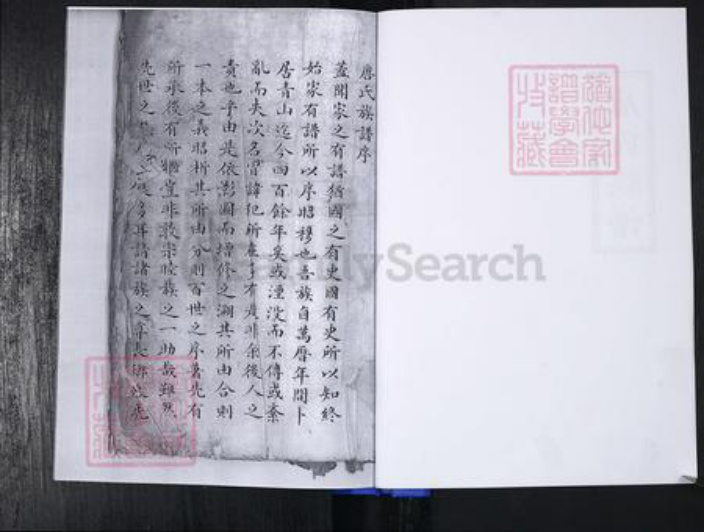 唐氏族譜序
蓋聞家之有譜猶國之有史國有史所以知終
始家有譜所以序昭穆也吾族自萬曆年間卜
居青山迄今四百餘年矣或湮沒而不傳或紊
亂而失次名習諱犯所在多有是非余後人之
責也乎由是依影圖而增修之溯其所由合則
一本之義昭析其所由分則百世之序著先有
所承後有所繼豈非敦宗睦族之一助哉雖然
先世之人多耳諸族之長
猶他家
譜學會
收藏
FamilySearch